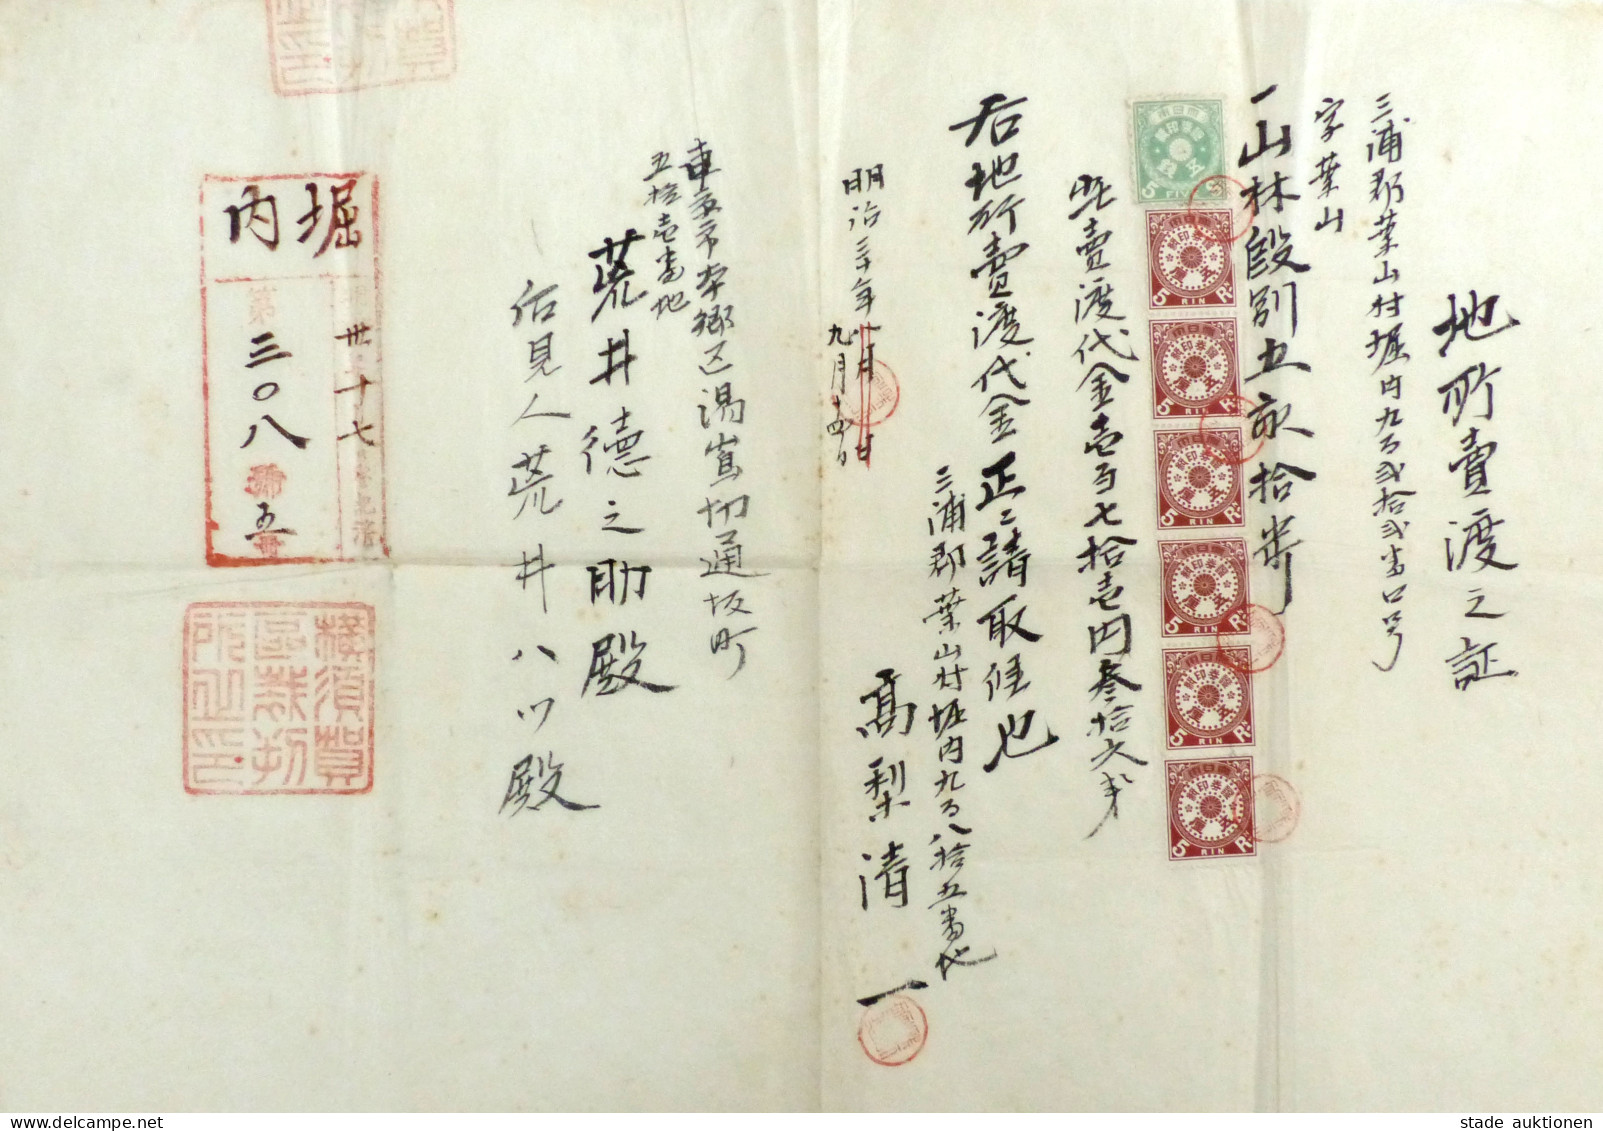 地所賣渡之証
三浦郡葉山村堀内九百弐拾弐番口号
字葉山
一山林段別五畝拾歩
此賣渡代金壱百七拾壱円叁拾六銭
右地所賣渡代金正ニ請取候也
三浦郡葉山村堀内九百八拾五番地
髙梨清一
明治三十年
九月十四日
東京市本郷区湯島切通坂町
五拾壱番地
荒井德之助殿
后見人荒井八
殿
堀内
第三〇八號
五
卅
十七
横須賀
區裁判
所之印
5 RIN Rn
5 RIN Rn
5 RIN Rn
5 RIN Rn
5 RIN Rn
5 RIN Rn
stade auktionen